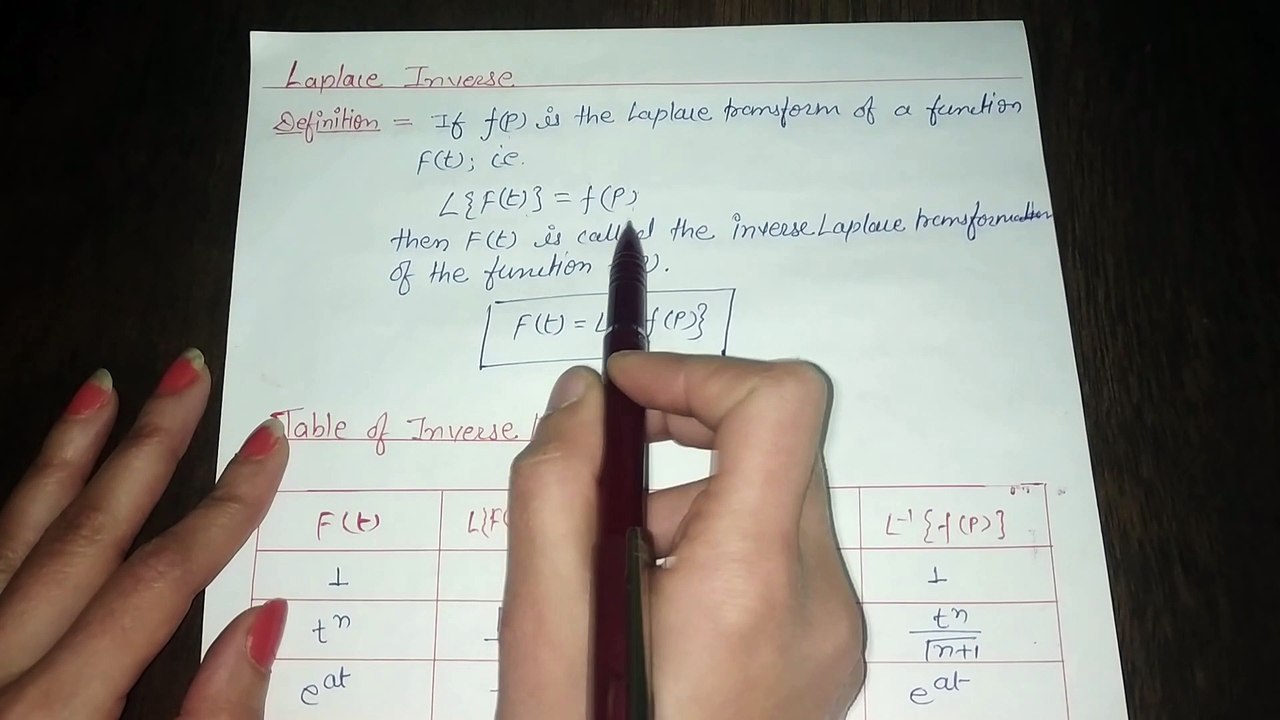 Laplace Inverse
Definition = If f(P) is the Laplace transform of a function
F(t); i.e.
L{F(t)} = f(P)
then F(t) is called the inverse Laplace transformation
of the function
F(t) = L f(P)}
Table of Inverse
F(t) L{F( L⁻¹{f(P)}
1 1
tⁿ tⁿ/Γn+1
e^at e^at